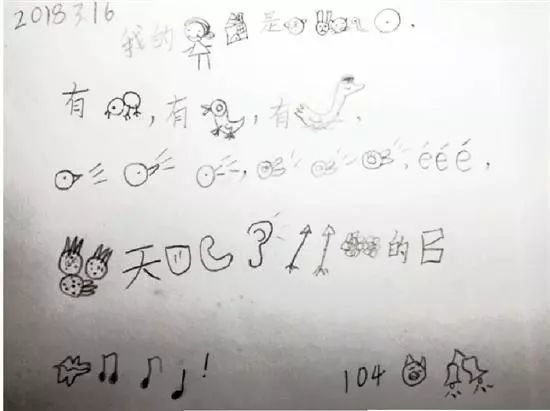 2018 3.16
我的是.
有, 有, 有.
, é é é.
天的
!
104